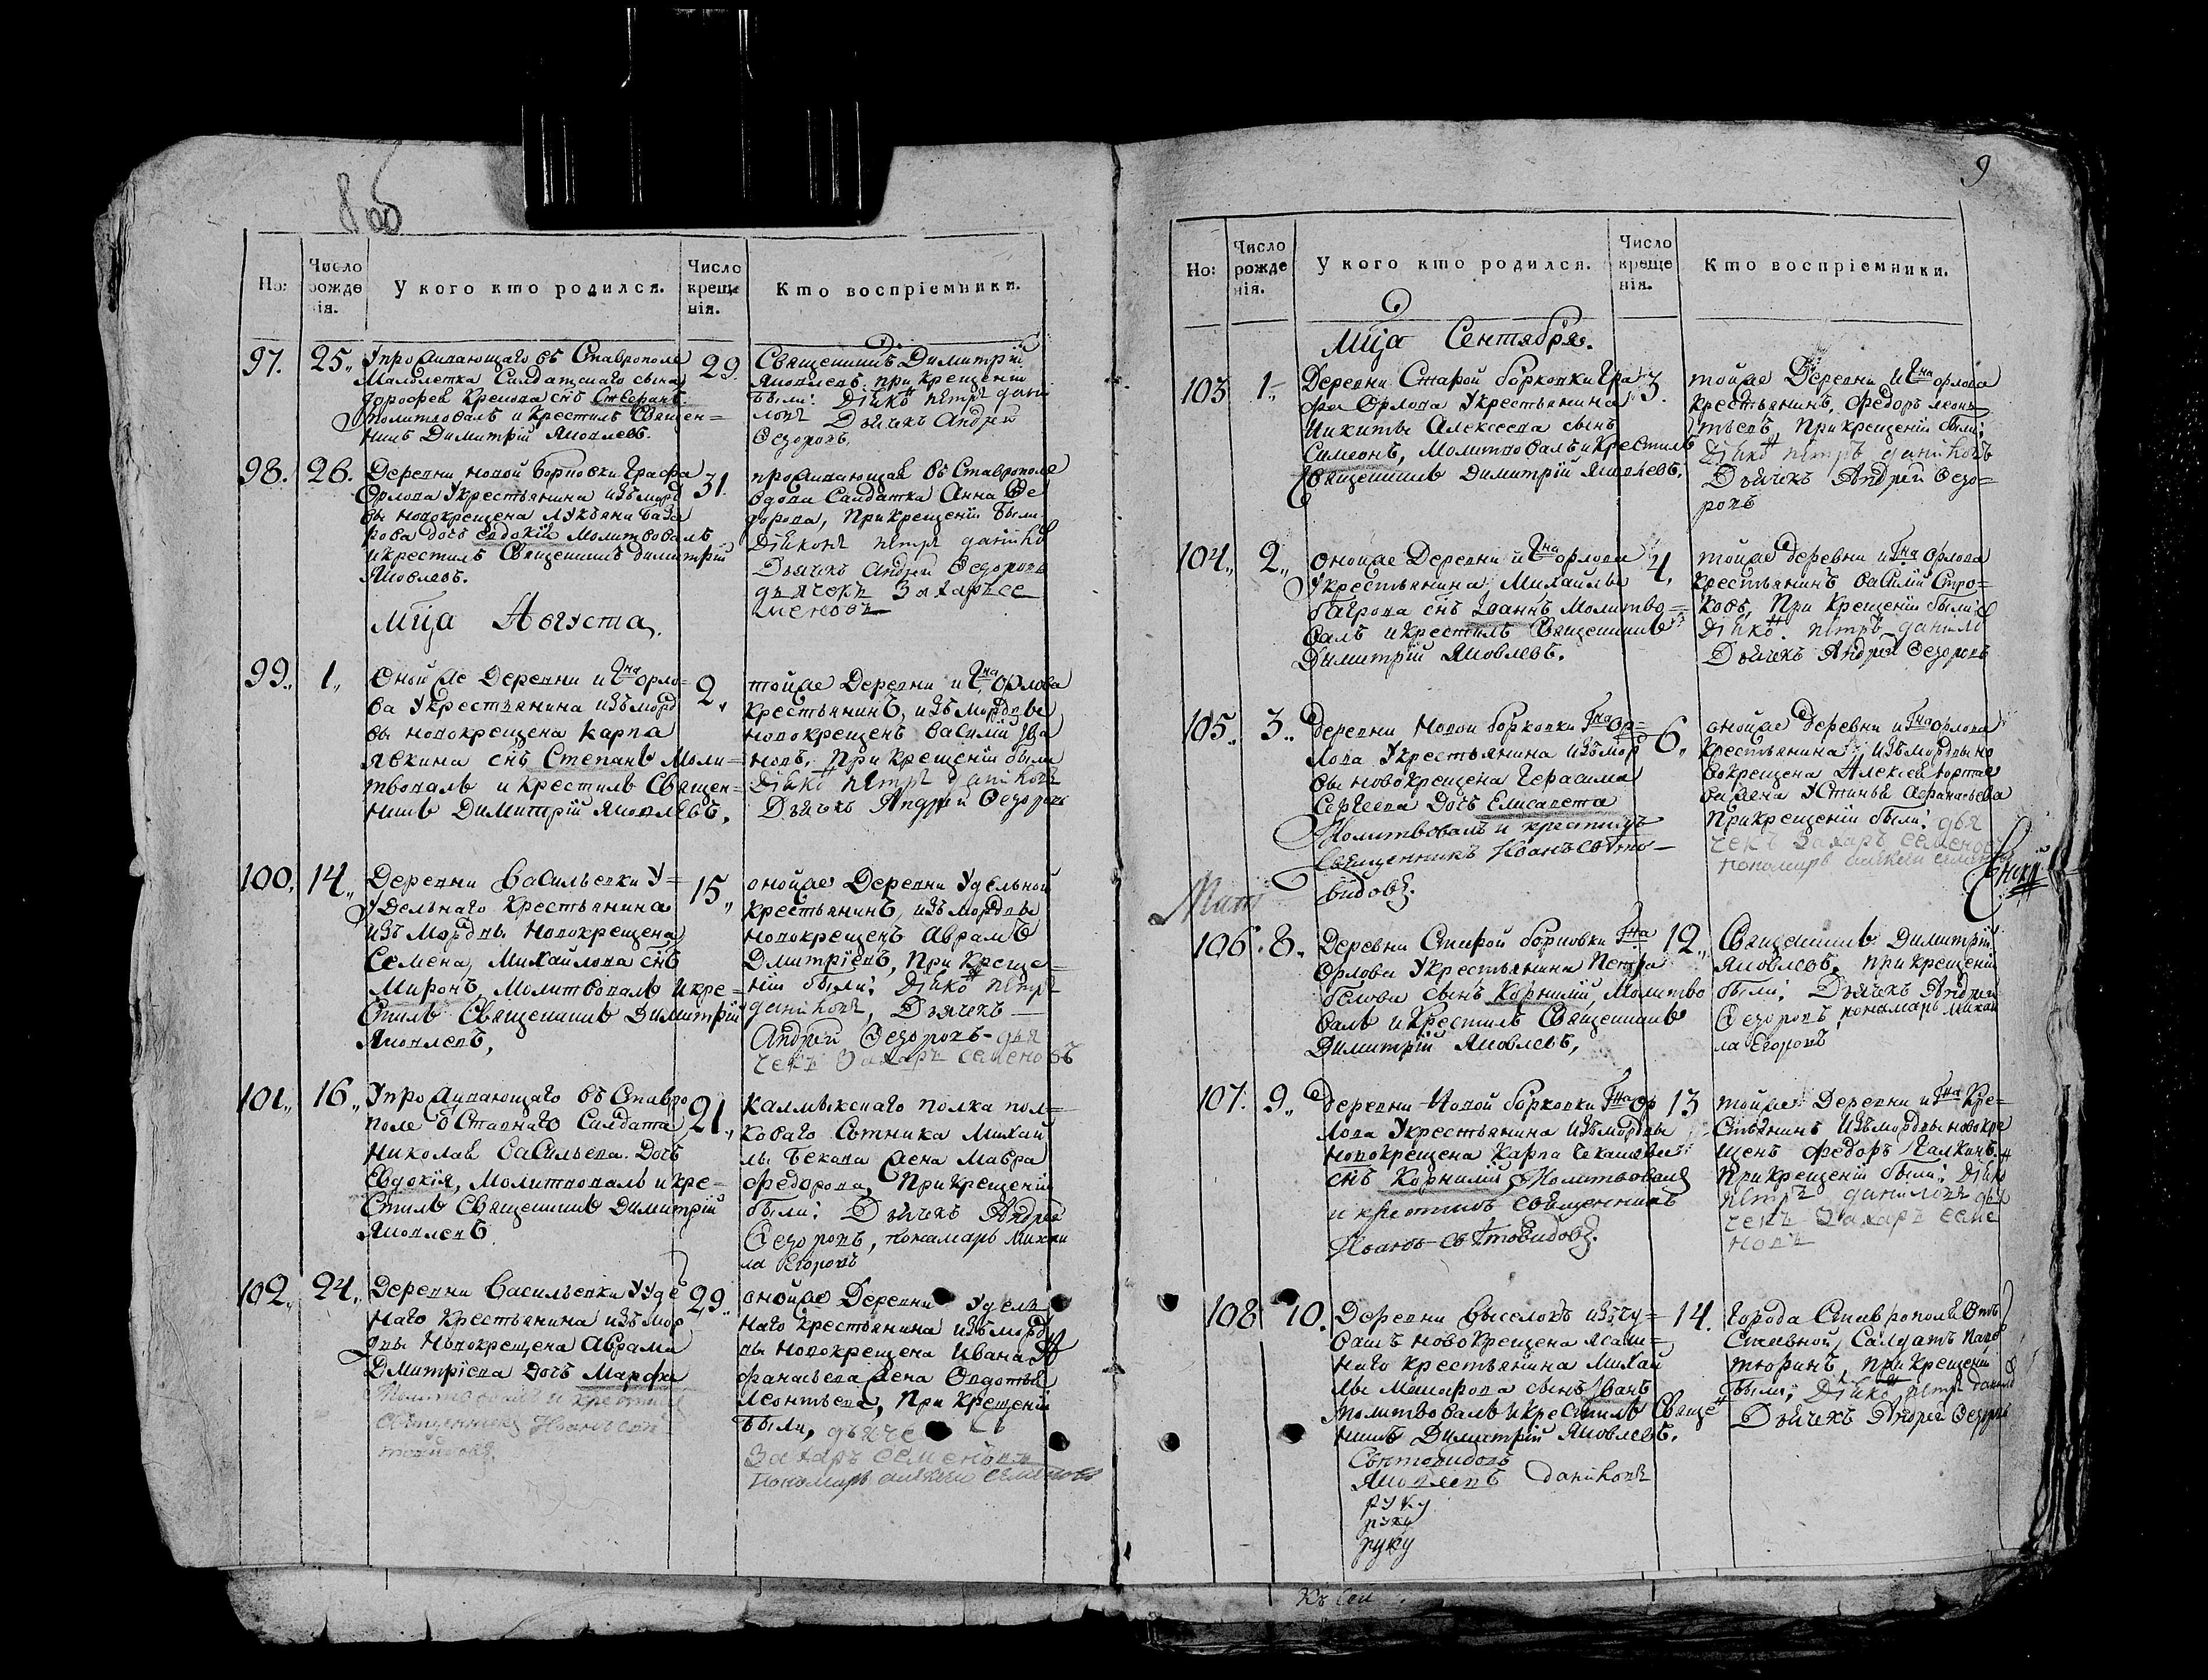 8 об
Но:
Число рожденія.
У кого кто родился.
Число крещенія.
Кто воспріемники.
97.
25.
Упроживающаго въ Ставрополе
Малолетка Салдатскаго сына
дорофея снъ Стефанъ.
молитвовалъ и Крестилъ Священ=
никъ Димитрій Яковлевъ.
29.
Священникъ Димитрій
Яковлевъ. при крещеніи
были: Діako петръ дани
ловъ Дьячекъ Андрей
Ѳедоровъ.
98.
26.
Деревни новой борковки Графа
Орлова Укрестьянина изъ морд
вы новокрещена лукъяна
дочь евдокія молитвовалъ
и крестилъ Священникъ димитрій
Яковлевъ.
31.
проживающая въ Ставрополе
вдова Салдатка Анна Ѳе
дорова, При крещеніи были
Діаконъ петръ данило
Дьячекъ Андрей Ѳедоровъ
дьячекъ Захаръ се
меновъ
Мца Августа.
99.
1.
Оной же Деревни и Гна орло-
ва Укрестьянина изъ морд
вы новокрещена карпа
снъ Степанъ Моли-
твовалъ и крестилъ Священ=
никъ Димитрій Яковлевъ.
2.
тойже Деревни и Гна Орлова
крестьянинъ, изъ мордвы
новокрещенъ василій Ива
новъ, При крещеніи были
діako петръ даниловъ
Дьячекъ Андрей Ѳедоровъ
100.
14.
Деревни Васильевки У=
Удельнаго крестьянина
изъ мордвы новокрещена
Семена Михайлова снъ
Миронъ, молитвовалъ и кре=
стилъ Священникъ Димитрій
Яковлевъ,
15.
онойже Деревни Удельной
крестьянинъ, изъ мордвы
новокрещенъ Аврамъ
Дмитріевъ, при креще=
ніи были: діako петръ
даниловъ, Дьячекъ
Андрей Ѳедоровъ - дья
чекъ Захаръ семеновъ
101.
16.
Упроживающаго въ Ставро
поле Отставнаго Салдата
Николая Васильева Дочь
Евдокія, молитвовалъ и кре=
стилъ Священникъ Димитрій
Яковлевъ
21.
Калмыкскаго полка пол=
коваго Сотника Михай
лы жена Мавра
Федорова, При крещеніи
были: Дьячекъ Андрей
Ѳедоровъ, пономарь михаи
ла Егоровъ
102.
24.
Деревни Васильевки Ууде
наго крестьянина изъ мор
двы новокрещена Аврама
Дмитріева Дочь Марфа
молитвовалъ и крестилъ
священникъ Иоаннъ свя
товидовъ.
29.
онойже Деревни Удель
наго крестьянина изъ морд
вы новокрещена Ивана А
фанасьева жена Овдотья
Леонтьева, При крещеніи
были, дьяче
Захаръ семеновъ
пономарь алексей семеновъ
9
Но:
Число рожденія.
У кого кто родился.
Число крещенія.
Кто воспріемники.
Мца Сентября.
103
1.
Деревни Старой борковки Гра
фа Орлова Укрестьянина
Никиты Алексеева сынъ
Симеонъ, молитвовалъ и крестилъ
Священникъ Димитрій Яковлевъ.
3.
тойже Деревни и Гна орлова
крестьянинъ, федоръ леон
тьевъ, При крещеніи были;
діako петръ даниловъ
Дьячекъ Андрей Ѳедо=
ровъ
104.
2.
онойже Деревни и Гна орлова
Укрестьянина Михайлы
багрова снъ Иоаннъ Молитво=
валъ и крестилъ Священникъ
Димитрій Яковлевъ.
4.
тойже деревни и Гна Орлова
крестьянинъ василій Стро=
ковъ, При крещеніи были
діako. петръ данило
Дьячекъ Андрей Ѳедоровъ
105.
3.
деревни Новой борковки Гна Ор=
лова Укрестьянина изъ мор
вы новокрещена Герасима
Сергеева дочь Елисавета
Молитвовалъ и крестилъ
Священникъ Иоанъ свято-
видовъ.
6.
онойже деревни и Гна орлова
крестьянина изъ мордвы но
вокрещена Алексея
жена Устинья Афанасьева
При крещеніи были: дья
чекъ Захаръ семенов
пономарь алексей семенов
106.
8.
Деревни Старой борковки Гна
Орлова Укрестьянина Петра
белова сынъ Корнилій, Молитво
валъ и крестилъ Священникъ
Димитрій Яковлевъ,
12.
Священникъ Димитрій
Яковлевъ, при крещеніи
были: Дьячекъ Андрей
Ѳедоровъ, пономарь михаи
ла Егоровъ
107.
9.
деревни Новой борковки Гна Ор
лова Укрестьянина изъ мордвы
новокрещена Карпа
снъ Корнилій, Молитвовалъ
и крестилъ священникъ
Иоаннъ святовидовъ.
13
тойже Деревни и Гна Кре=
стьянинъ изъ мордвы новокре
щенъ федоръ Галкинъ.
При крещеніи были: діako
петръ даниловъ дья
чекъ Захаръ семе
новъ
108
10.
Деревни выселокъ изъ чу=
вашъ новокрещена ясаш=
наго крестьянина Михай
лы сынъ Иванъ
молитвовалъ и крестилъ Свяще
никъ Димитрій Яковлевъ.
14.
города Ставрополя Отъ
ставной Салдатъ
при крещеніи
были; діako петръ данило
Дьячекъ Андрей Ѳедоровъ
Святовидовъ
Яковлевъ даниловъ
руку
руку
руку
Къ сей